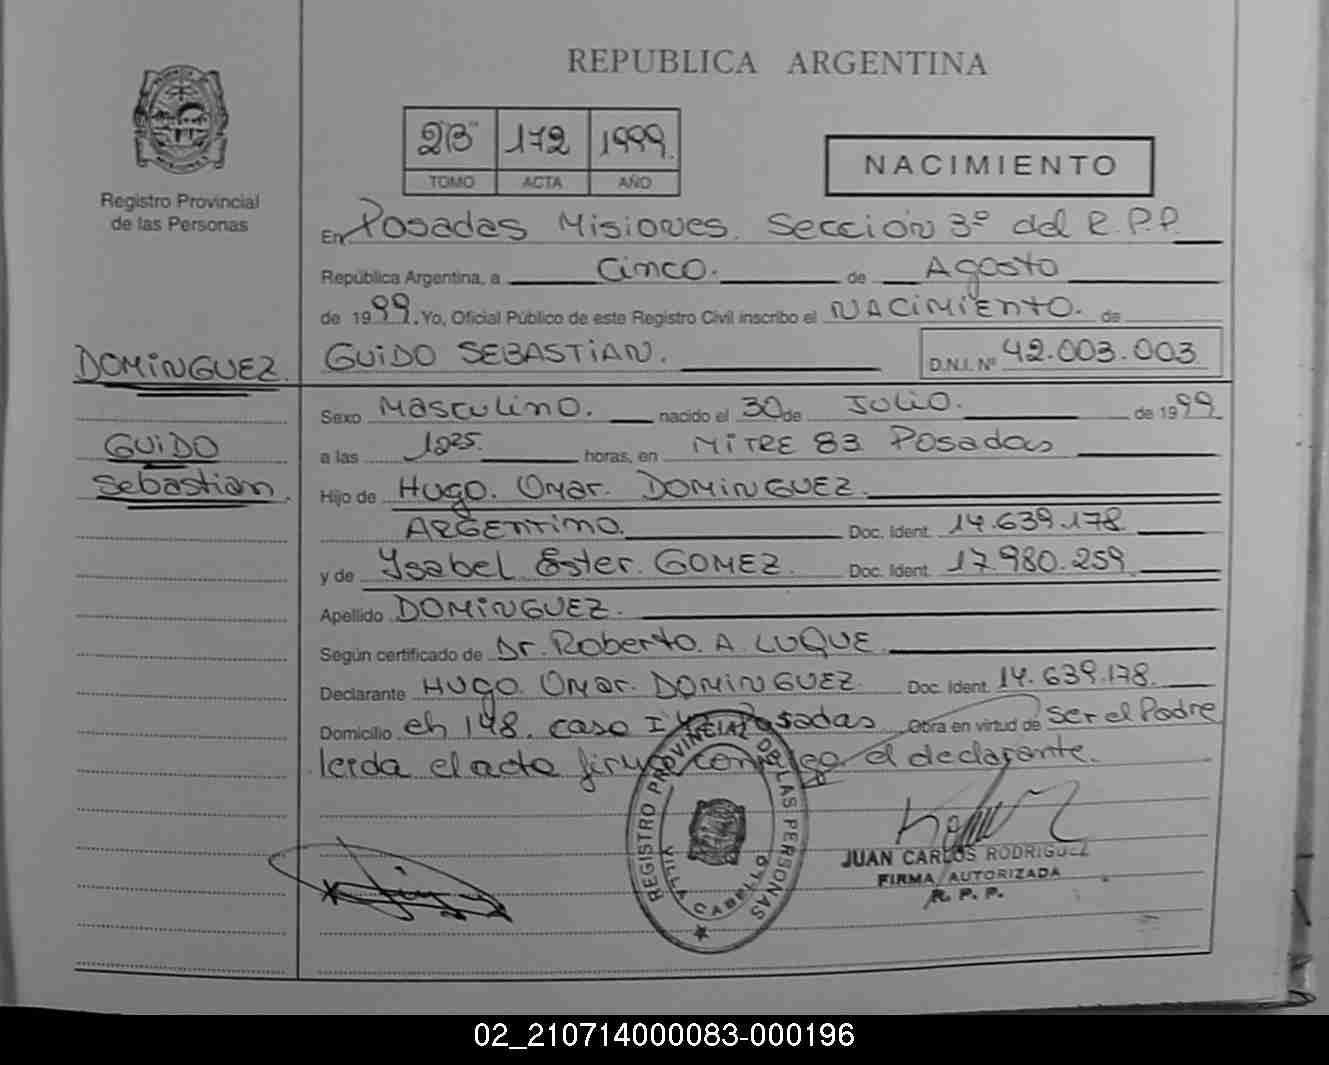 REPUBLICA ARGENTINA
Registro Provincial
de las Personas
2B 172 1999.
TOMO ACTA AÑO
NACIMIENTO
En Posadas Misiones. Sección 3º del R.P.P.
República Argentina, a Cinco. de Agosto
de 1999. Yo, Oficial Público de este Registro Civil inscribo el NACIMIENTO. de
DOMINGUEZ. GUIDO SEBASTIAN. D.N.I. Nº 42.003.003
Sexo Masculino. nacido el 30 de Julio. de 1999
GUIDO a las 1225. horas, en MITRE 83 Posadas
Sebastian. Hijo de Hugo. Omar. DOMINGUEZ.
ARGENTINO. Doc. Ident. 14.639.178
y de Ysabel Ester. GOMEZ. Doc. Ident. 17.980.259
Apellido DOMINGUEZ.
Según certificado de Dr. Roberto. A LUQUE.
Declarante HUGO. OMAR. DOMINGUEZ. Doc. Ident. 14.639.178.
Domicilio ch 148. casa Posadas Obra en virtud de Ser el Padre
leida el acta firma conmigo el declarante.
REGISTRO PROVINCIAL DE LAS PERSONAS
VILLA CABELLO
JUAN CARLOS RODRIGUEZ
FIRMA AUTORIZADA
R. P. P.
02_210714000083-000196